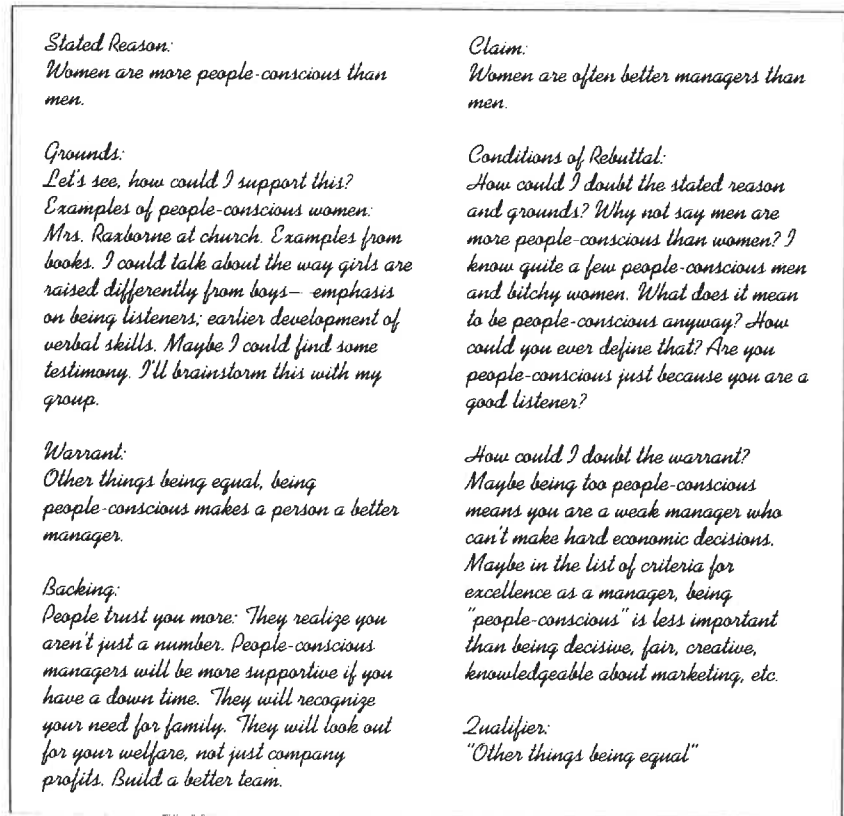 Stated Reason:
Women are more people-conscious than
men.
Grounds:
Let's see, how could I support this?
Examples of people-conscious women:
Mrs. Raxborne at church. Examples from
books. I could talk about the way girls are
raised differently from boys— emphasis
on being listeners; earlier development of
verbal skills. Maybe I could find some
testimony. I'll brainstorm this with my
group.
Warrant:
Other things being equal, being
people-conscious makes a person a better
manager.
Backing:
People trust you more: They realize you
aren't just a number. People-conscious
managers will be more supportive if you
have a down time. They will recognize
your need for family. They will look out
for your welfare, not just company
profits. Build a better team.
Claim:
Women are often better managers than
men.
Conditions of Rebuttal:
How could I doubt the stated reason
and grounds? Why not say men are
more people-conscious than women? I
know quite a few people-conscious men
and bitchy women. What does it mean
to be people-conscious anyway? How
could you ever define that? Are you
people-conscious just because you are a
good listener?
How could I doubt the warrant?
Maybe being too people-conscious
means you are a weak manager who
can't make hard economic decisions.
Maybe in the list of criteria for
excellence as a manager, being
"people-conscious" is less important
than being decisive, fair, creative,
knowledgeable about marketing, etc.
Qualifier:
"Other things being equal"